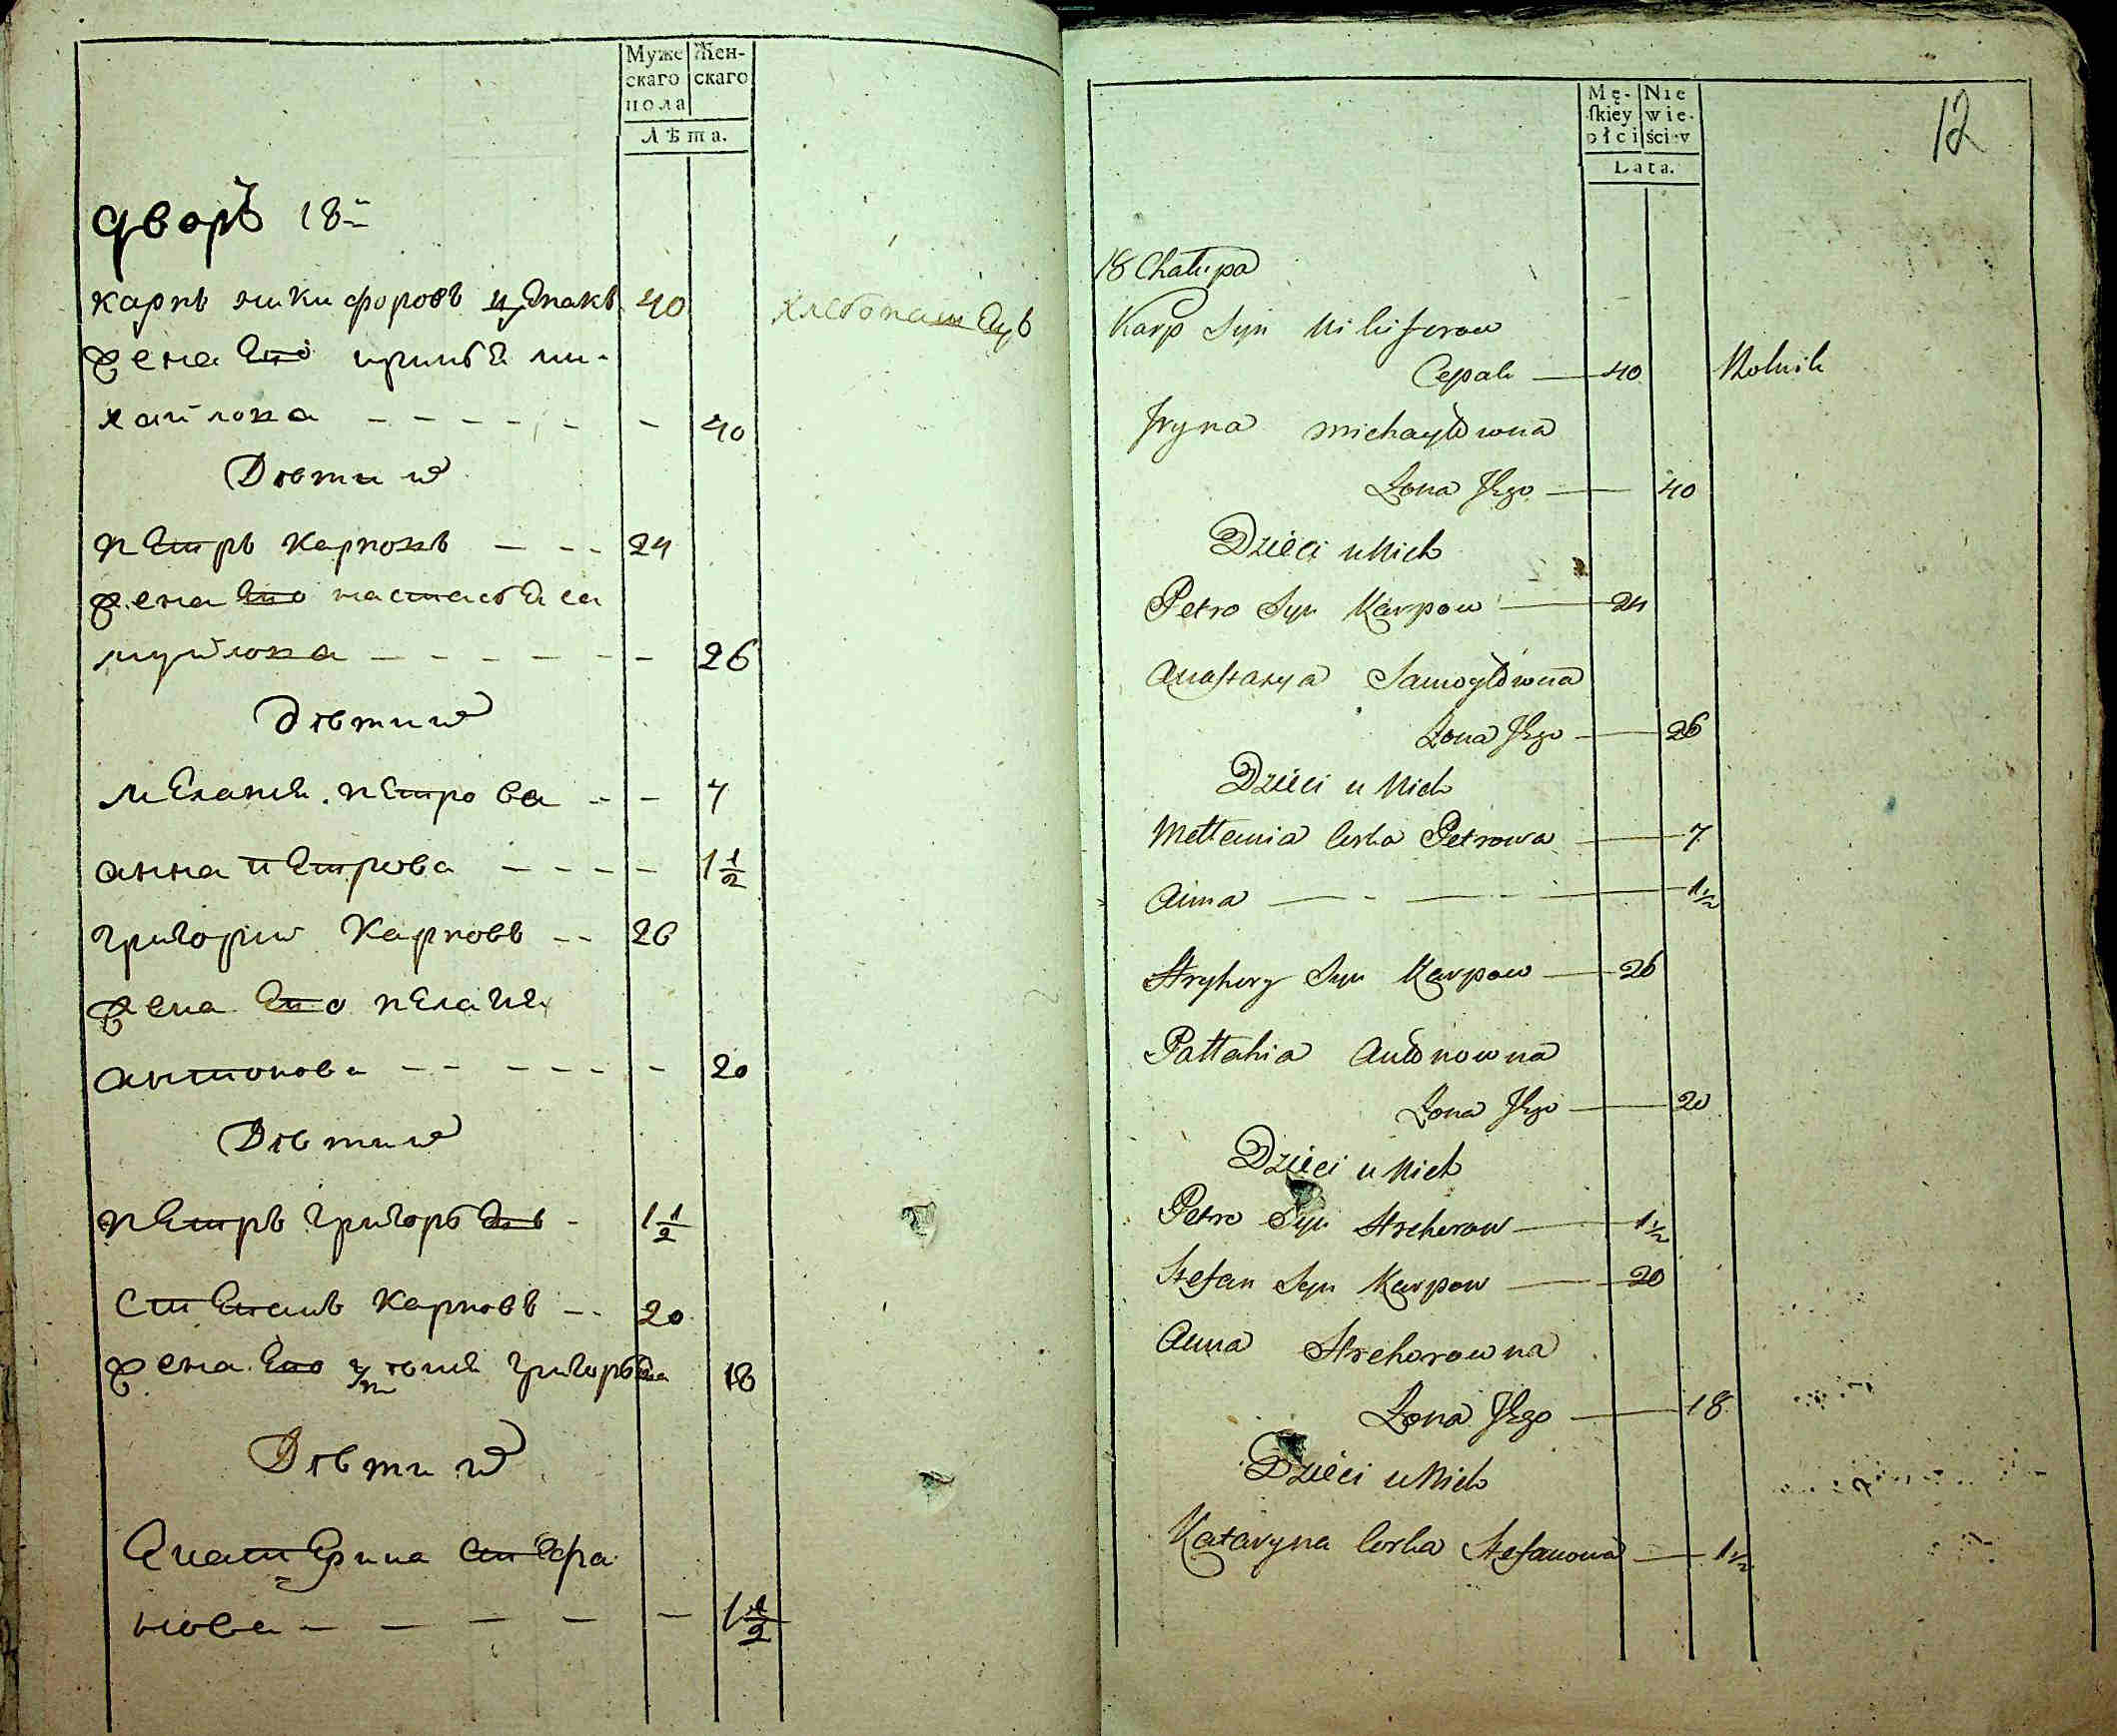 Муже Жен-
скаго скаго
пола
Лѣта.
дворъ 18й
карпъ никифоровъ цепакъ 40 хлебопашецъ
жена его иринья ми-
хайлова 40
Дѣти ихъ
петръ карповъ 24
жена его настасья са
муйлова 26
дѣти ихъ
мелания петрова 7
анна петрова 1 1/2
григорий карповъ 26
жена его пелагия
антонова 20
Дѣти ихъ
петръ григорьевъ 1 1/2
степанъ карповъ 20
жена его григорьева 18
Дѣти ихъ
Екатерина стефа
нова 1 1/2
12
Mę- Nie
skiey wie-
płci ściey
Lata.
18 Chałupa
Karp Syn Nikiforow
Cepak 40 Rolnik
Jryna Michayłowna
Żona Jego 40
Dzieci u Nich
Petro Syn Karpow 24
Anastazya Samoyłowna
Żona Jego 26
Dzieci u Nich
Mełłania Corka Petrowa 7
Anna 1 1/2
Hryhory Syn Karpow 26
Pałłahia Antonowna
Żona Jego 20
Dzieci u Nich
Petro Syn Hrehorow 1 1/2
Stefan Syn Karpow 20
Anna Hrehorowna
Żona Jego 18
Dzieci u Nich
Kataryna Corka Stefanowa 1 1/2